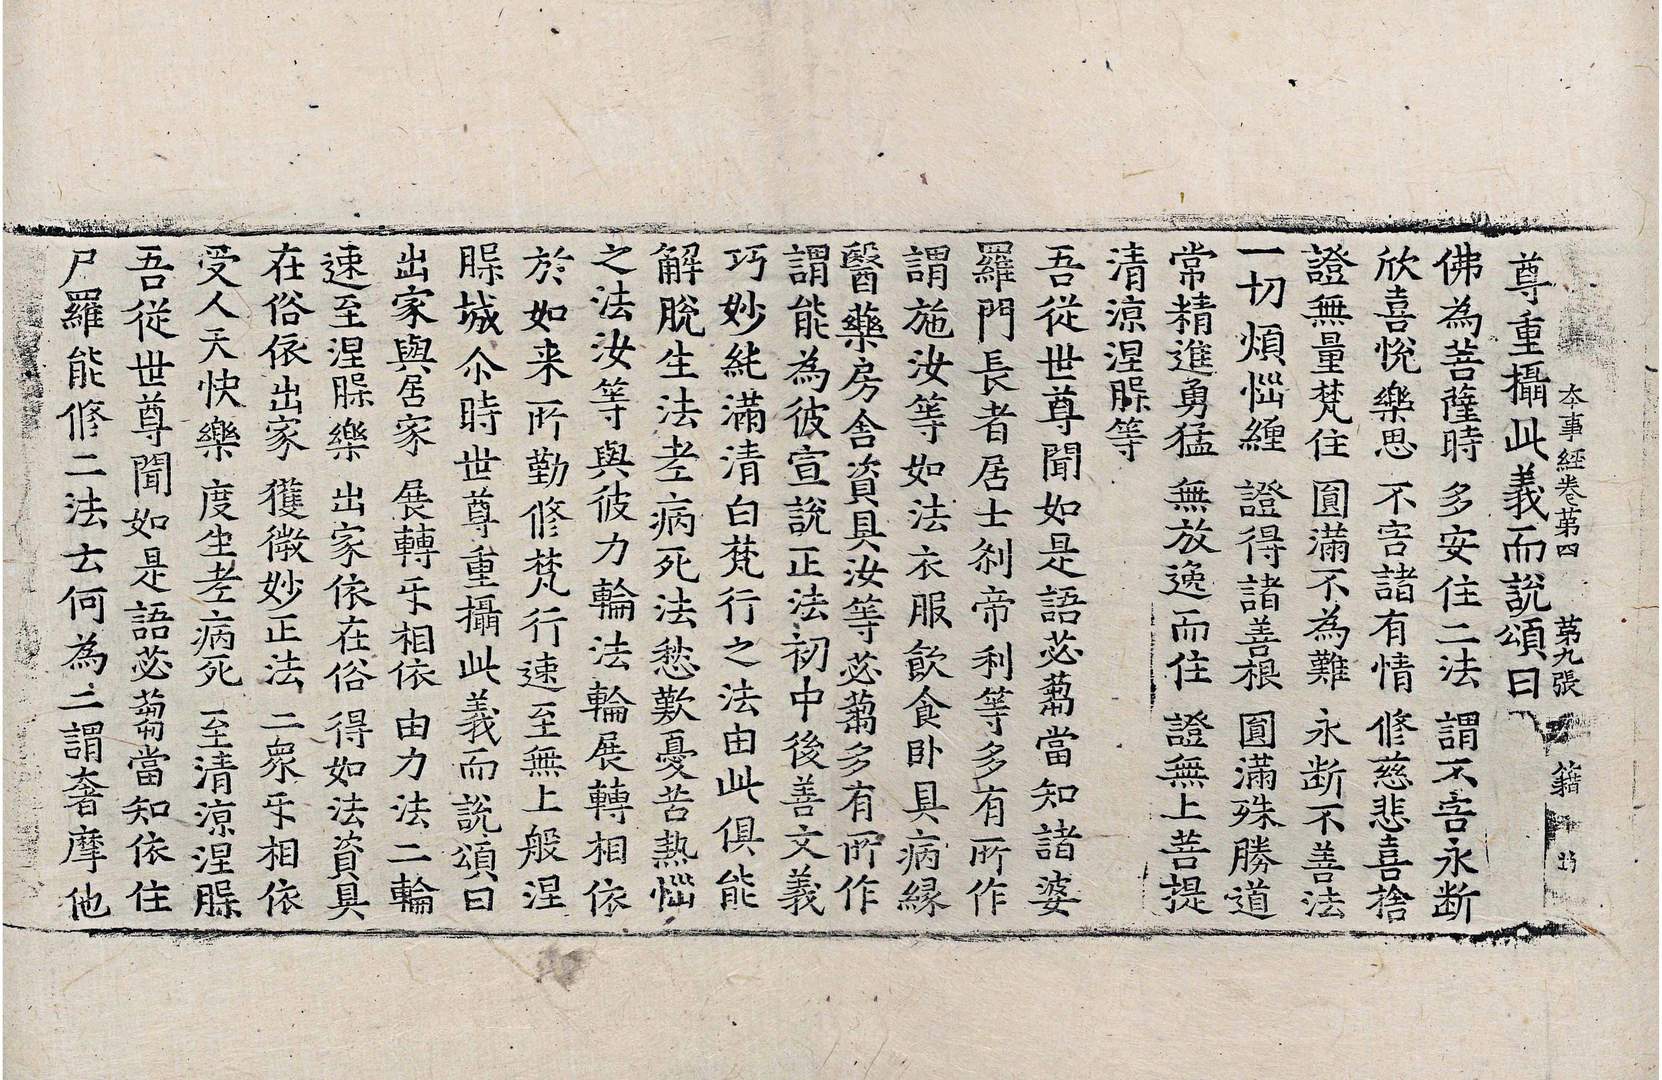 本事經卷第四 第九張 籍
尊重攝此義而說頌曰
佛為菩薩時 多安住二法 謂不害永斷
欣喜悅樂思 不害諸有情 修慈悲喜捨
證無量梵住 圓滿不為難 永断不善法
一切煩惱纏 證得諸善根 圓滿殊勝道
常精進勇猛 無放逸而住 證無上菩提
清涼涅槃等
吾從世尊聞如是語苾蒭當知諸婆
羅門長者居士剎帝利等多有所作
謂施汝等如法衣服飲食卧具病緣
醫藥房舍資具汝等苾蒭多有所作
謂能為彼宣說正法初中後善文義
巧妙純滿清白梵行之法由此俱能
解脫生法老病死法愁歎憂苦熱惱
之法汝等與彼力輪法輪展轉相依
於如来所勤修梵行速至無上般涅
槃城尒時世尊重攝此義而說頌曰
出家與居家 展轉㸦相依 由力法二輪
速至涅槃樂 出家依在俗 得如法資具
在俗依出家 獲微妙正法 二衆㸦相依
受人天快樂 度生老病死 至清涼涅槃
吾從世尊聞如是語苾蒭當知依住
尸羅能修二法云何為二謂奢摩他